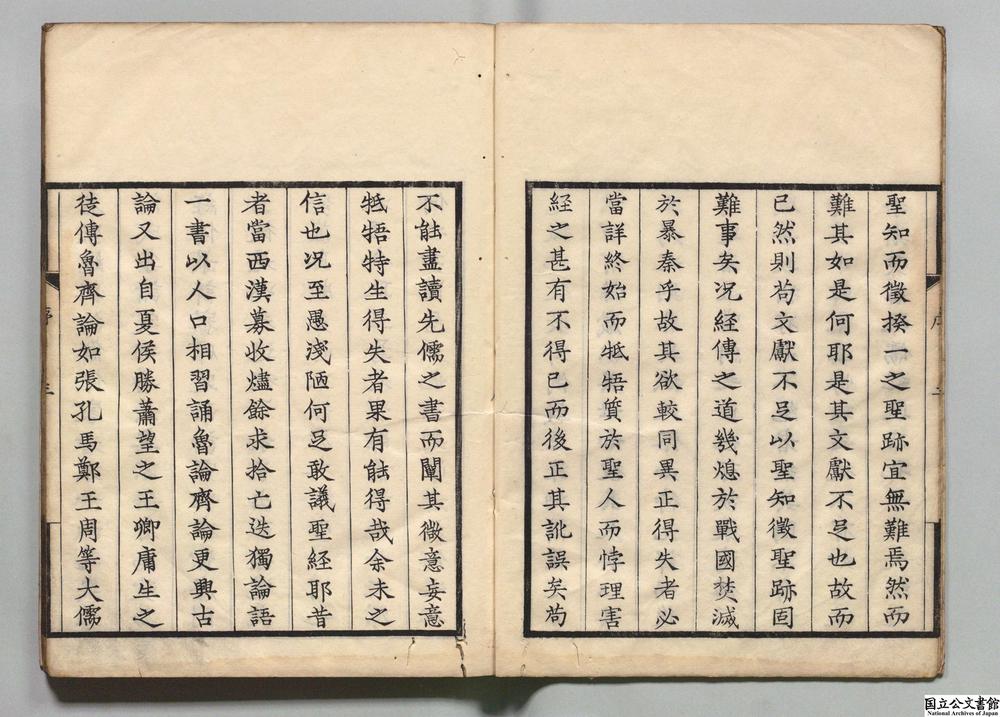 聖知而徵揆一之聖跡宜無難焉然而
難其如是何耶是其文獻不足也故而
已然則苟文獻不足以聖知徵聖跡固
難事矣况經傳之道幾熄於戰國焚滅
於暴秦乎故其欲較同異正得失者必
當詳終始而牴牾質於聖人而悖理害
經之甚有不得已而後正其訛誤矣苟
不能盡讀先儒之書而闡其微意妄意
牴牾特生得失者果有能得哉余未之
信也况至愚淺陋何足敢議聖經耶昔
者當西漢募收燼餘求拾亡迭獨論語
一書以人口相習誦魯論齊論更興古
論又出自夏侯勝蕭望之王卿庸生之
徒傳魯齊論如張孔馬鄭王周等大儒
序
国立公文書館
National Archives of Japan